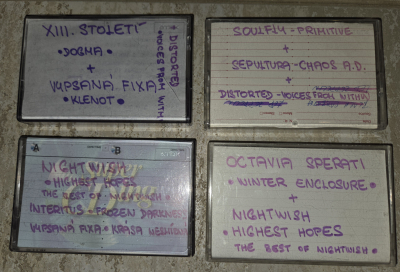 XIII. STOLETÍ
• DOGMA •
+
VYPSANÁ FIXA
• KLENOT •
+ DISTORTED
VOICES FROM WITH
SOULFLY - PRIMITIVE
+
SEPULTURA - CHAOS A.D.
+
DISTORTED - VOICES FROM WITHIN
A
B
NIGHTWISH
• HIGHEST HOPES
THE BEST OF NIGHTWISH •
INTERITUS - FROZEN DARKNESS
VYPSANÁ FIXA - KRÁSA
OCTAVIA SPERATI
• WINTER ENCLOSURE •
+
NIGHTWISH
• HIGHEST HOPES
THE BEST OF NIGHTWISH •